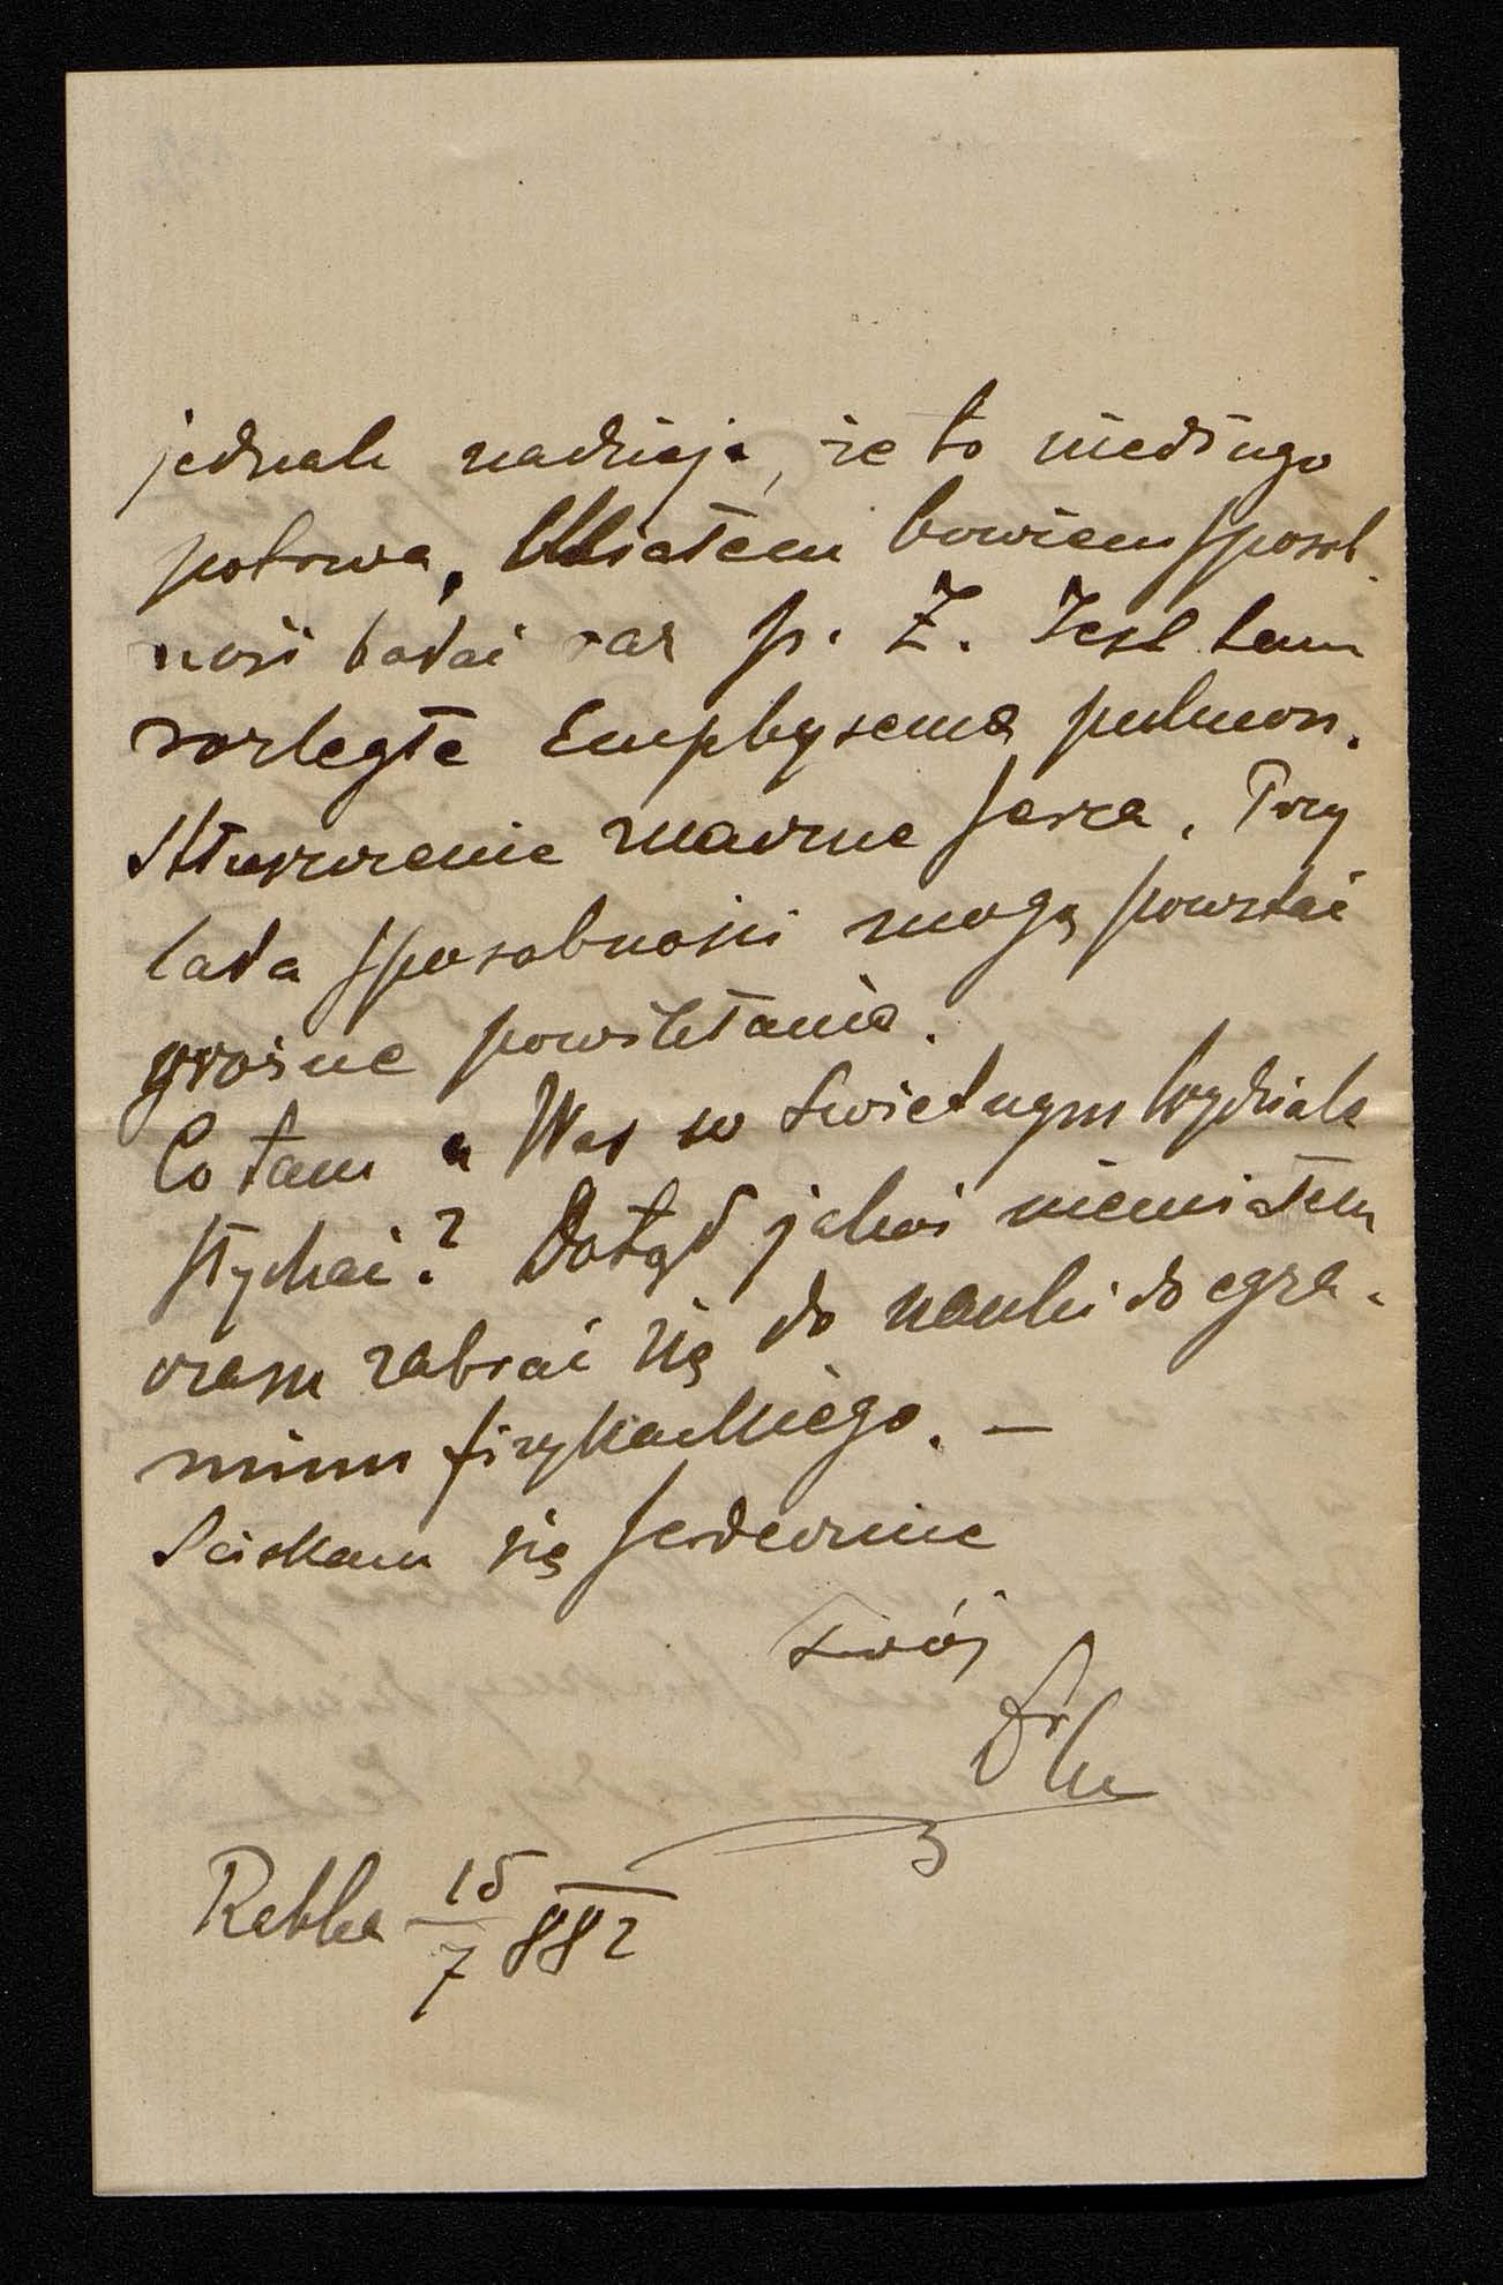 jednak nadzieja, że to niedługo
potrwa. Miałem bowiem sposob-
ność badać raz p. Z. Jest tam
rozległe Emphysema pulmon.
Stłuszczenie znaczne serca. Przy
lada sposobności mogą powstać
groźne powikłania.
Co tam u Was w świetnym Wydziale
słychać? Dotąd jakoś niemiałem
czasu zabrać się do nauki do egza-
minu fizykackiego. —
Ściskam Cię serdecznie
Twój
Rabka 15/7 882